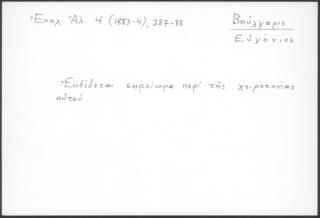 Ἐκκλ. Ἀλ. 4 (1883-4), 287-88
Βούλγαρις
Εὐγένιος
Ἐκδίδεται σημείωμα περὶ τῆς χειροτονίας
αὐτοῦ